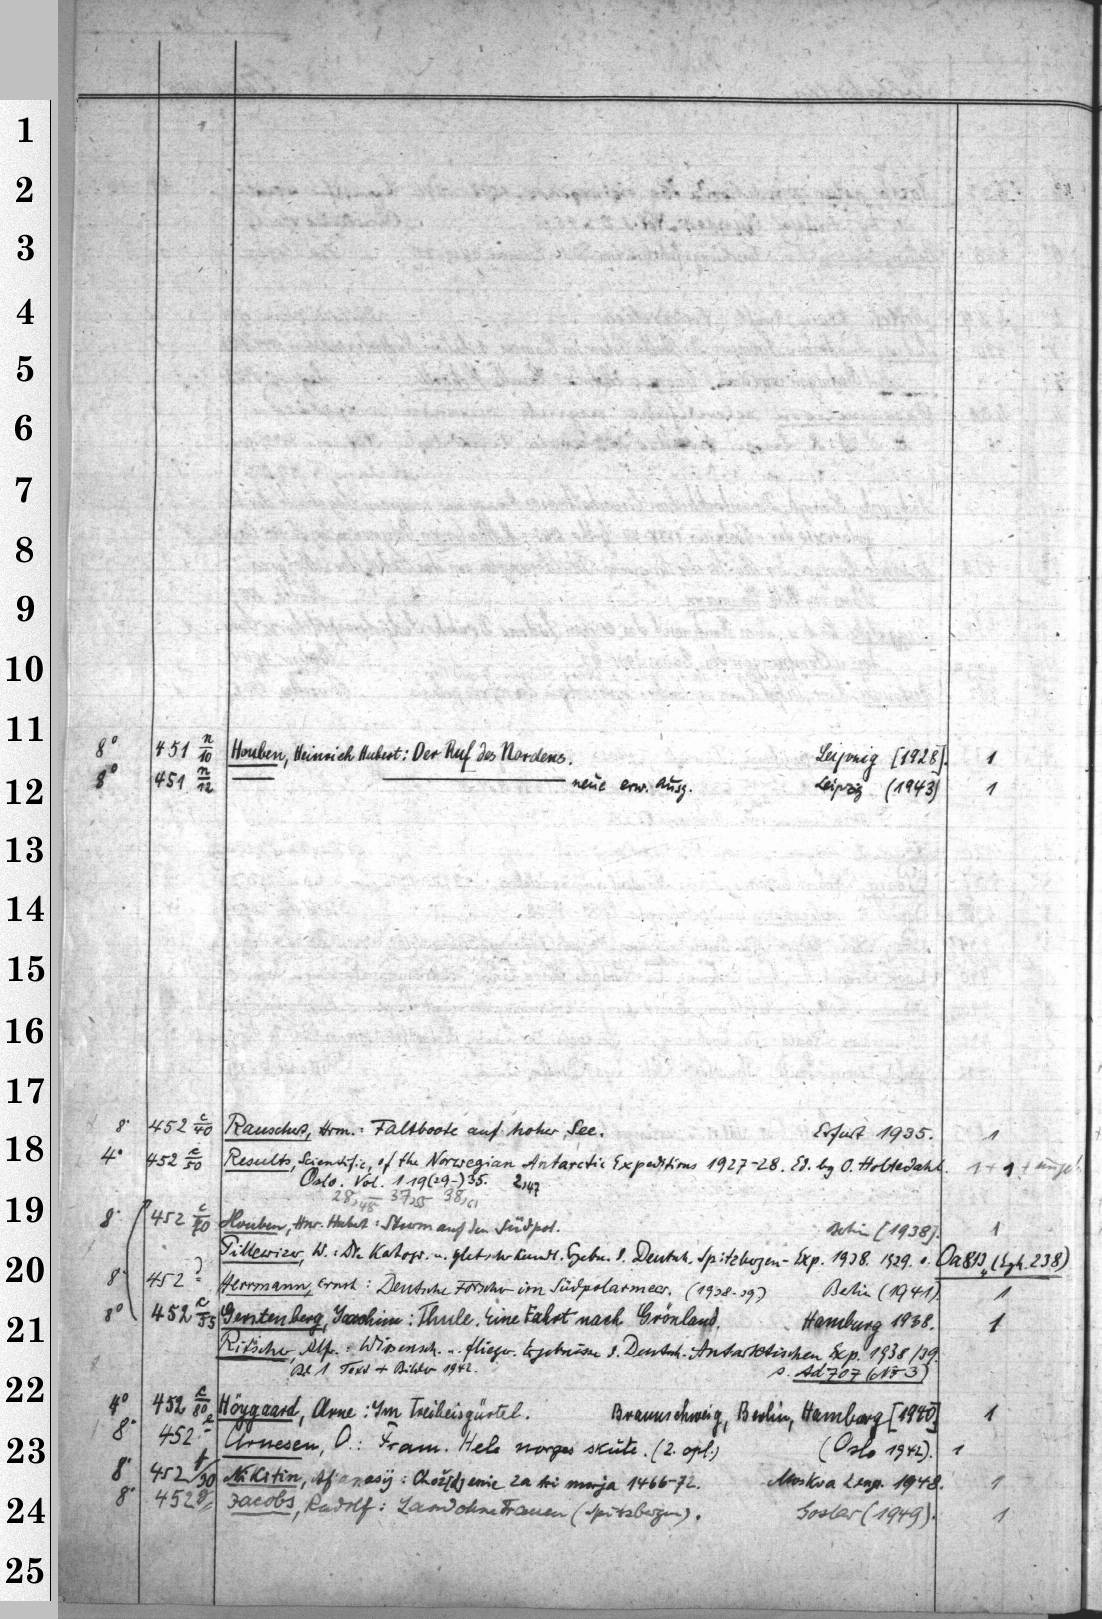 1
2
3
4
5
6
7
8
9
10
11
8° 451 n/10 Houben, Heinrich Hubert: Der Ruf des Nordens. Leipzig [1928]. 1
12
8° 451 n/12 neue erw. Ausg. Leipzig (1943) 1
13
14
15
16
17
8° 452 c/40 Rauschert, Hrm.: Faltboote auf hoher See. Erfurt 1935. 1
18
4° 452 c/50 Results, Scientific, of the Norwegian Antarctic Expeditions 1927-28. Ed. by O. Holtedahl. 1 + 1 +
Oslo. Vol. 1 19(29-)35. 2,47
28,48 37,55 38,61
19
8° 452 c/70 Houben, Hnr. Hubert: Sturm auf den Südpol. Berlin (1938). 1
20
Pillewizer, W.: Die Kartogr. u. gletscherkundl. Ergebn. d. Deutsch. Spitzbergen-Exp. 1938. 1939. s. Oa 813 (Egh. 238)
8° 452 Herrmann, Ernst: Deutsche Forscher im Südpolarmeer. (1938-39.) Berlin (1941). 1
8° 452 Gerstenberg, Joachim: Thule. Eine Fahrt nach Grönland. Hamburg 1938. 1
21
Ritscher, Alfr.: Wissensch. u. flieger. Ergebnisse d. Deutsch. Antarktischen Exp. 1938/39.
Bd 1 Text + Bilder 1942. s. Ad 707 (No 3)
22
4° 452 e/80 Höygaard, Arne: Im Treibeisgürtel. Braunschweig, Berlin, Hamburg [1940] 1
8° 452 Arnesen, O.: Fram. Hele norges skute. (2. opl.) (Oslo 1942). 1
23
8° 452 f/30 Nikitin, Afanasij: Chożdenie za tri morja 1466-72. Moskva Leng. 1948. 1
8° 452 Jacobs, Rudolf: Land ohne Frauen (Spitzbergen). Goslar (1949). 1
24
25